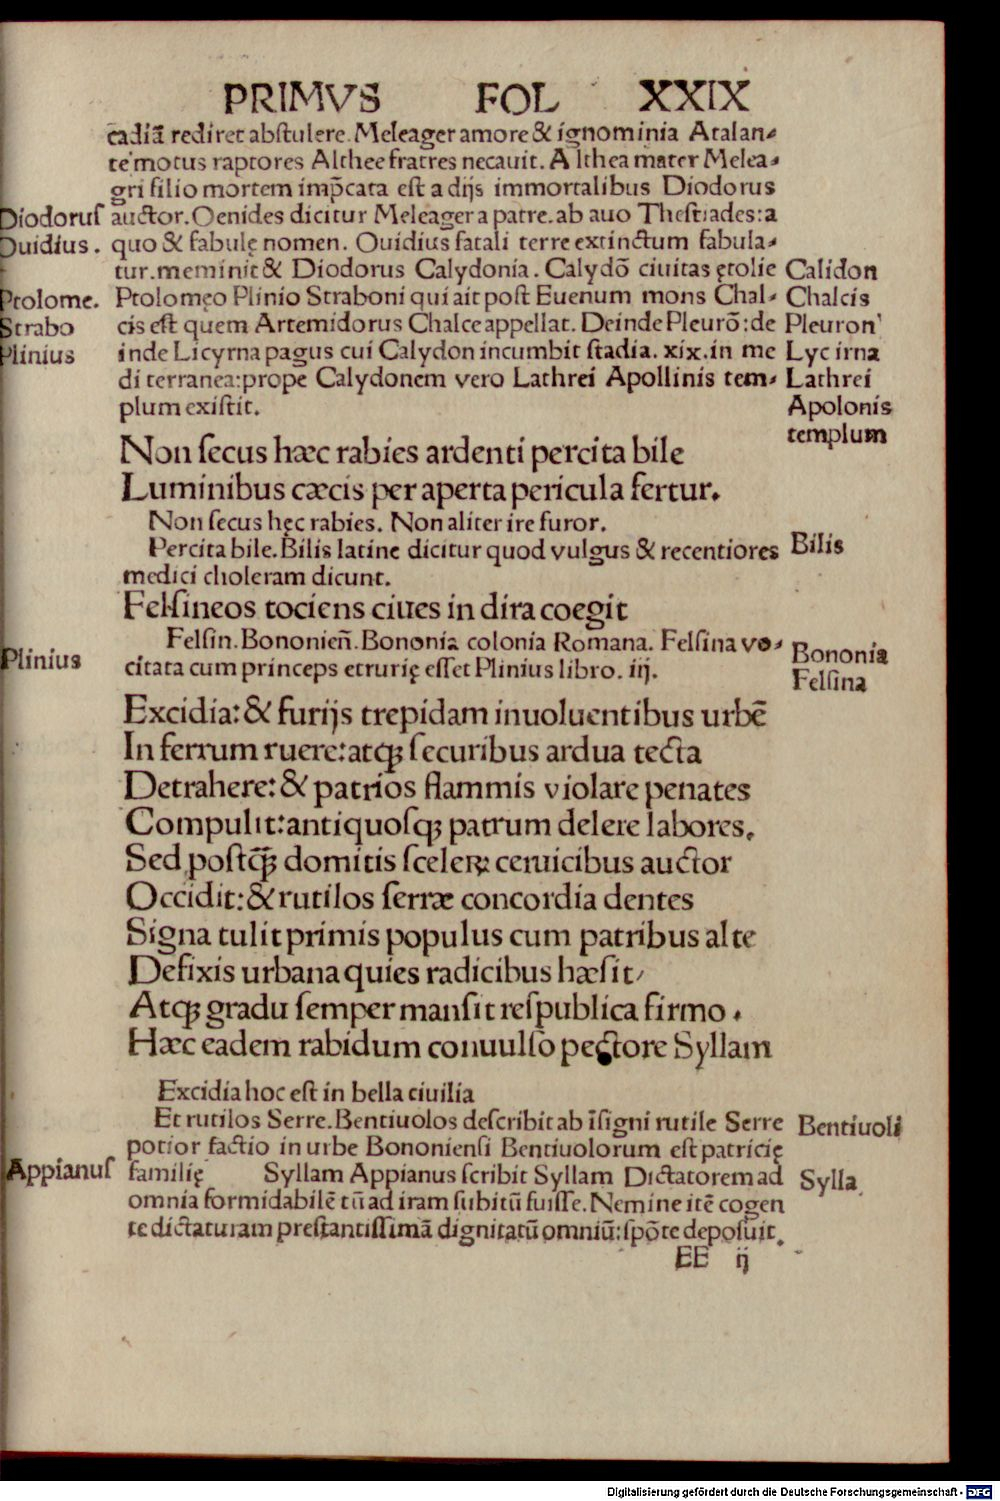 PRIMVS FOL XXIX
cadiā rediret abſtulere. Meleager amore & ignominia Atalan-
te motus raptores Altheę fratres necauit. Althea mater Melea-
gri filio mortem imp̄cata eſt a dijs immortalibus Diodorus
Diodoruſ auctor. Oenides dicitur Meleager a patre. ab auo Theſtiades: a
Ouidius. quo & fabulę nomen. Ouidius fatali terre extinctum fabula-
tur. meminit & Diodorus Calydonia. Calydō ciuitas ętolie Calidon
Ptolome. Ptolomęo Plinio Straboni qui ait poſt Euenum mons Chal- Chalcis
Strabo cis eſt quem Artemidorus Chalce appellat. Deinde Pleurō: de Pleuron
Plinius inde Licyrna pagus cui Calydon incumbit ſtadia. xix. in me Lycirna
di terranea: prope Calydonem vero Lathrei Apollinis tem- Lathrei
plum exiſtit. Apolonis
templum
Non ſecus hæc rabies ardenti percita bile
Luminibus cæcis per aperta pericula fertur.
Non ſecus hęc rabies. Non aliter ire furor.
Percita bile. Bilis latine dicitur quod vulgus & recentiores Bilis
medici choleram dicunt.
Felſineos tociens ciues in dira coegit
Felſin. Bononień. Bononia colonia Romana. Felſina vo- Bononia
Plinius citata cum princeps etrurię eſſet Plinius libro. iij. Felſina
Excidia: & furijs trepidam inuoluentibus urbē
In ferrum ruere: atq; ſecuribus ardua tecta
Detrahere: & patrios flammis violare penates
Compulit: antiquoſq; patrum delere labores.
Sed poſtq̄ domitis ſceleꝝ ceruicibus auctor
Occidit: & rutilos ſerræ concordia dentes
Signa tulit primis populus cum patribus alte
Defixis urbana quies radicibus hæſit/
Atq; gradu ſemper manſit reſpublica firmo.
Hæc eadem rabidum conuulſo pectore Syllam
Excidia hoc eſt in bella ciuilia
Et rutilos Serre. Bentiuolos deſcribit ab īſigni rutile Serre Bentiuoli
potior factio in urbe Bononienſi Bentiuolorum eſt patricię
Appianuſ familię Syllam Appianus ſcribit Syllam Dictatorem ad Sylla
omnia formidabilē tū ad iram ſubitū fuiſſe. Nemine itē cogen
te dictaturam preſtantiſſimā dignitatū omniū: ſpōte depoſuit.
EE ij
Digitalisierung gefördert durch die Deutsche Forschungsgemeinschaft - DFG